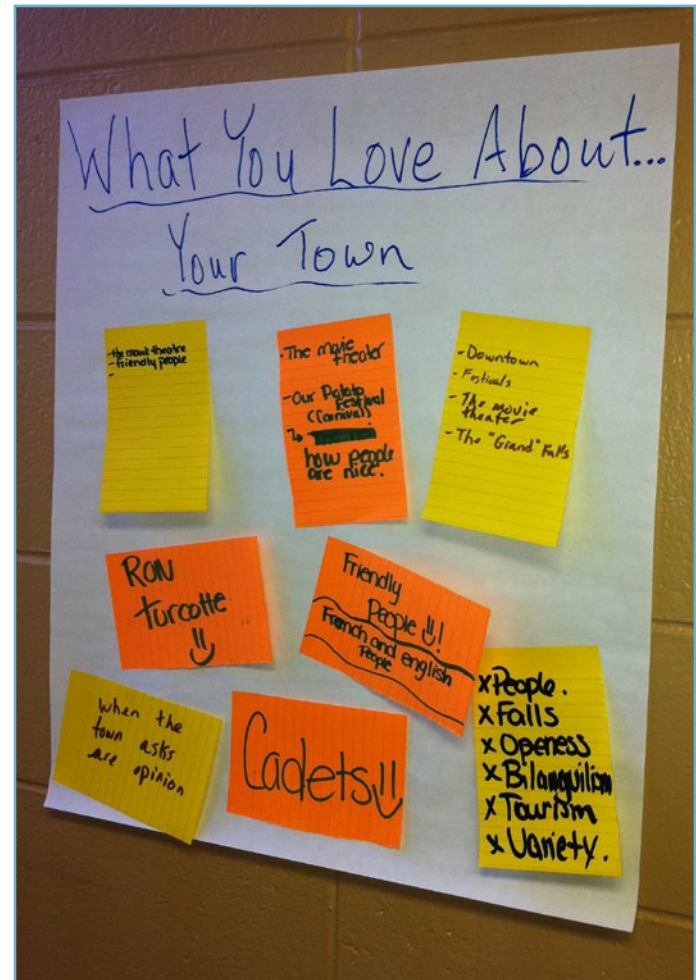 What You Love About...
Your Town
-the movie theatre
-friendly people
-
-The movie
theater
-Our Potato
Festival
(Carnival)
how people
are nice.
-Downtown
-Festivals
-The movie
theater
-The "Grand" Falls
RON
turcotte
Friendly
People !!!
French and english
People
when the
town asks
are opinion
Cadets!!
xPeople.
xFalls
x Openess
x Bilanguilism
x Tourism
x Variety.